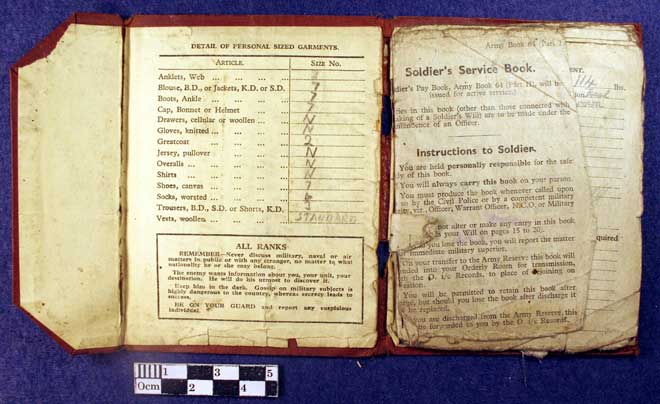 DETAIL OF PERSONAL SIZED GARMENTS.
ARTICLE. SIZE NO.
Anklets, Web ... ... ... ...
Blouse, B.D., or Jackets, K.D. or S.D. 7
Boots, Ankle ... ... ... ... 7
Cap, Bonnet or Helmet ... ... 7
Drawers, cellular or woollen ... ... N
Gloves, knitted ... ... ... ... N
Greatcoat ... ... ... ... 2
Jersey, pullover ... ... ... N
Overalls ... ... ... ... N
Shirts ... ... ... ... N
Shoes, canvas ... ... ... ... 7
Socks, worsted ... ... ...
Trousers, B.D., S.D. or Shorts, K.D.
Vests, woollen ... ... ... STANDARD
ALL RANKS
REMEMBER—Never discuss military, naval or air
matters in public or with any stranger, no matter to what
nationality he or she may belong.
The enemy wants information about you, your unit, your
destination. He will do his utmost to discover it.
Keep him in the dark. Gossip on military subjects is
highly dangerous to the country, whereas secrecy leads to
success.
BE ON YOUR GUARD and report any suspicious
individual.
Army Book 64 (Part I)
Soldier's Service Book.
Soldier's Pay Book, Army Book 64 (Part II), will be
issued for active service.)
in this book (other than those connected with
making of a Soldier's Will) are to be made under the
of an Officer.
Instructions to Soldier.
You are held personally responsible for the safe
of this book.
You will always carry this book on your person.
You must produce the book whenever called upon
so by the Civil Police or by a competent military
viz., Officer, Warrant Officer, N.C.O. or Military
not alter or make any entry in this book
as your Will on pages 15 to 20).
you lose the book, you will report the matter
immediate military superior.
your transfer to the Army Reserve this book will
into your Orderly Room for transmission,
the O. i/c Records, to place of rejoining on
You will be permitted to retain this book after
but should you lose the book after discharge it
be replaced.
you are discharged from the Army Reserve, this
be forwarded to you by the O. i/c Records.
114 lbs.
quired
0cm 1 2 3 4 5